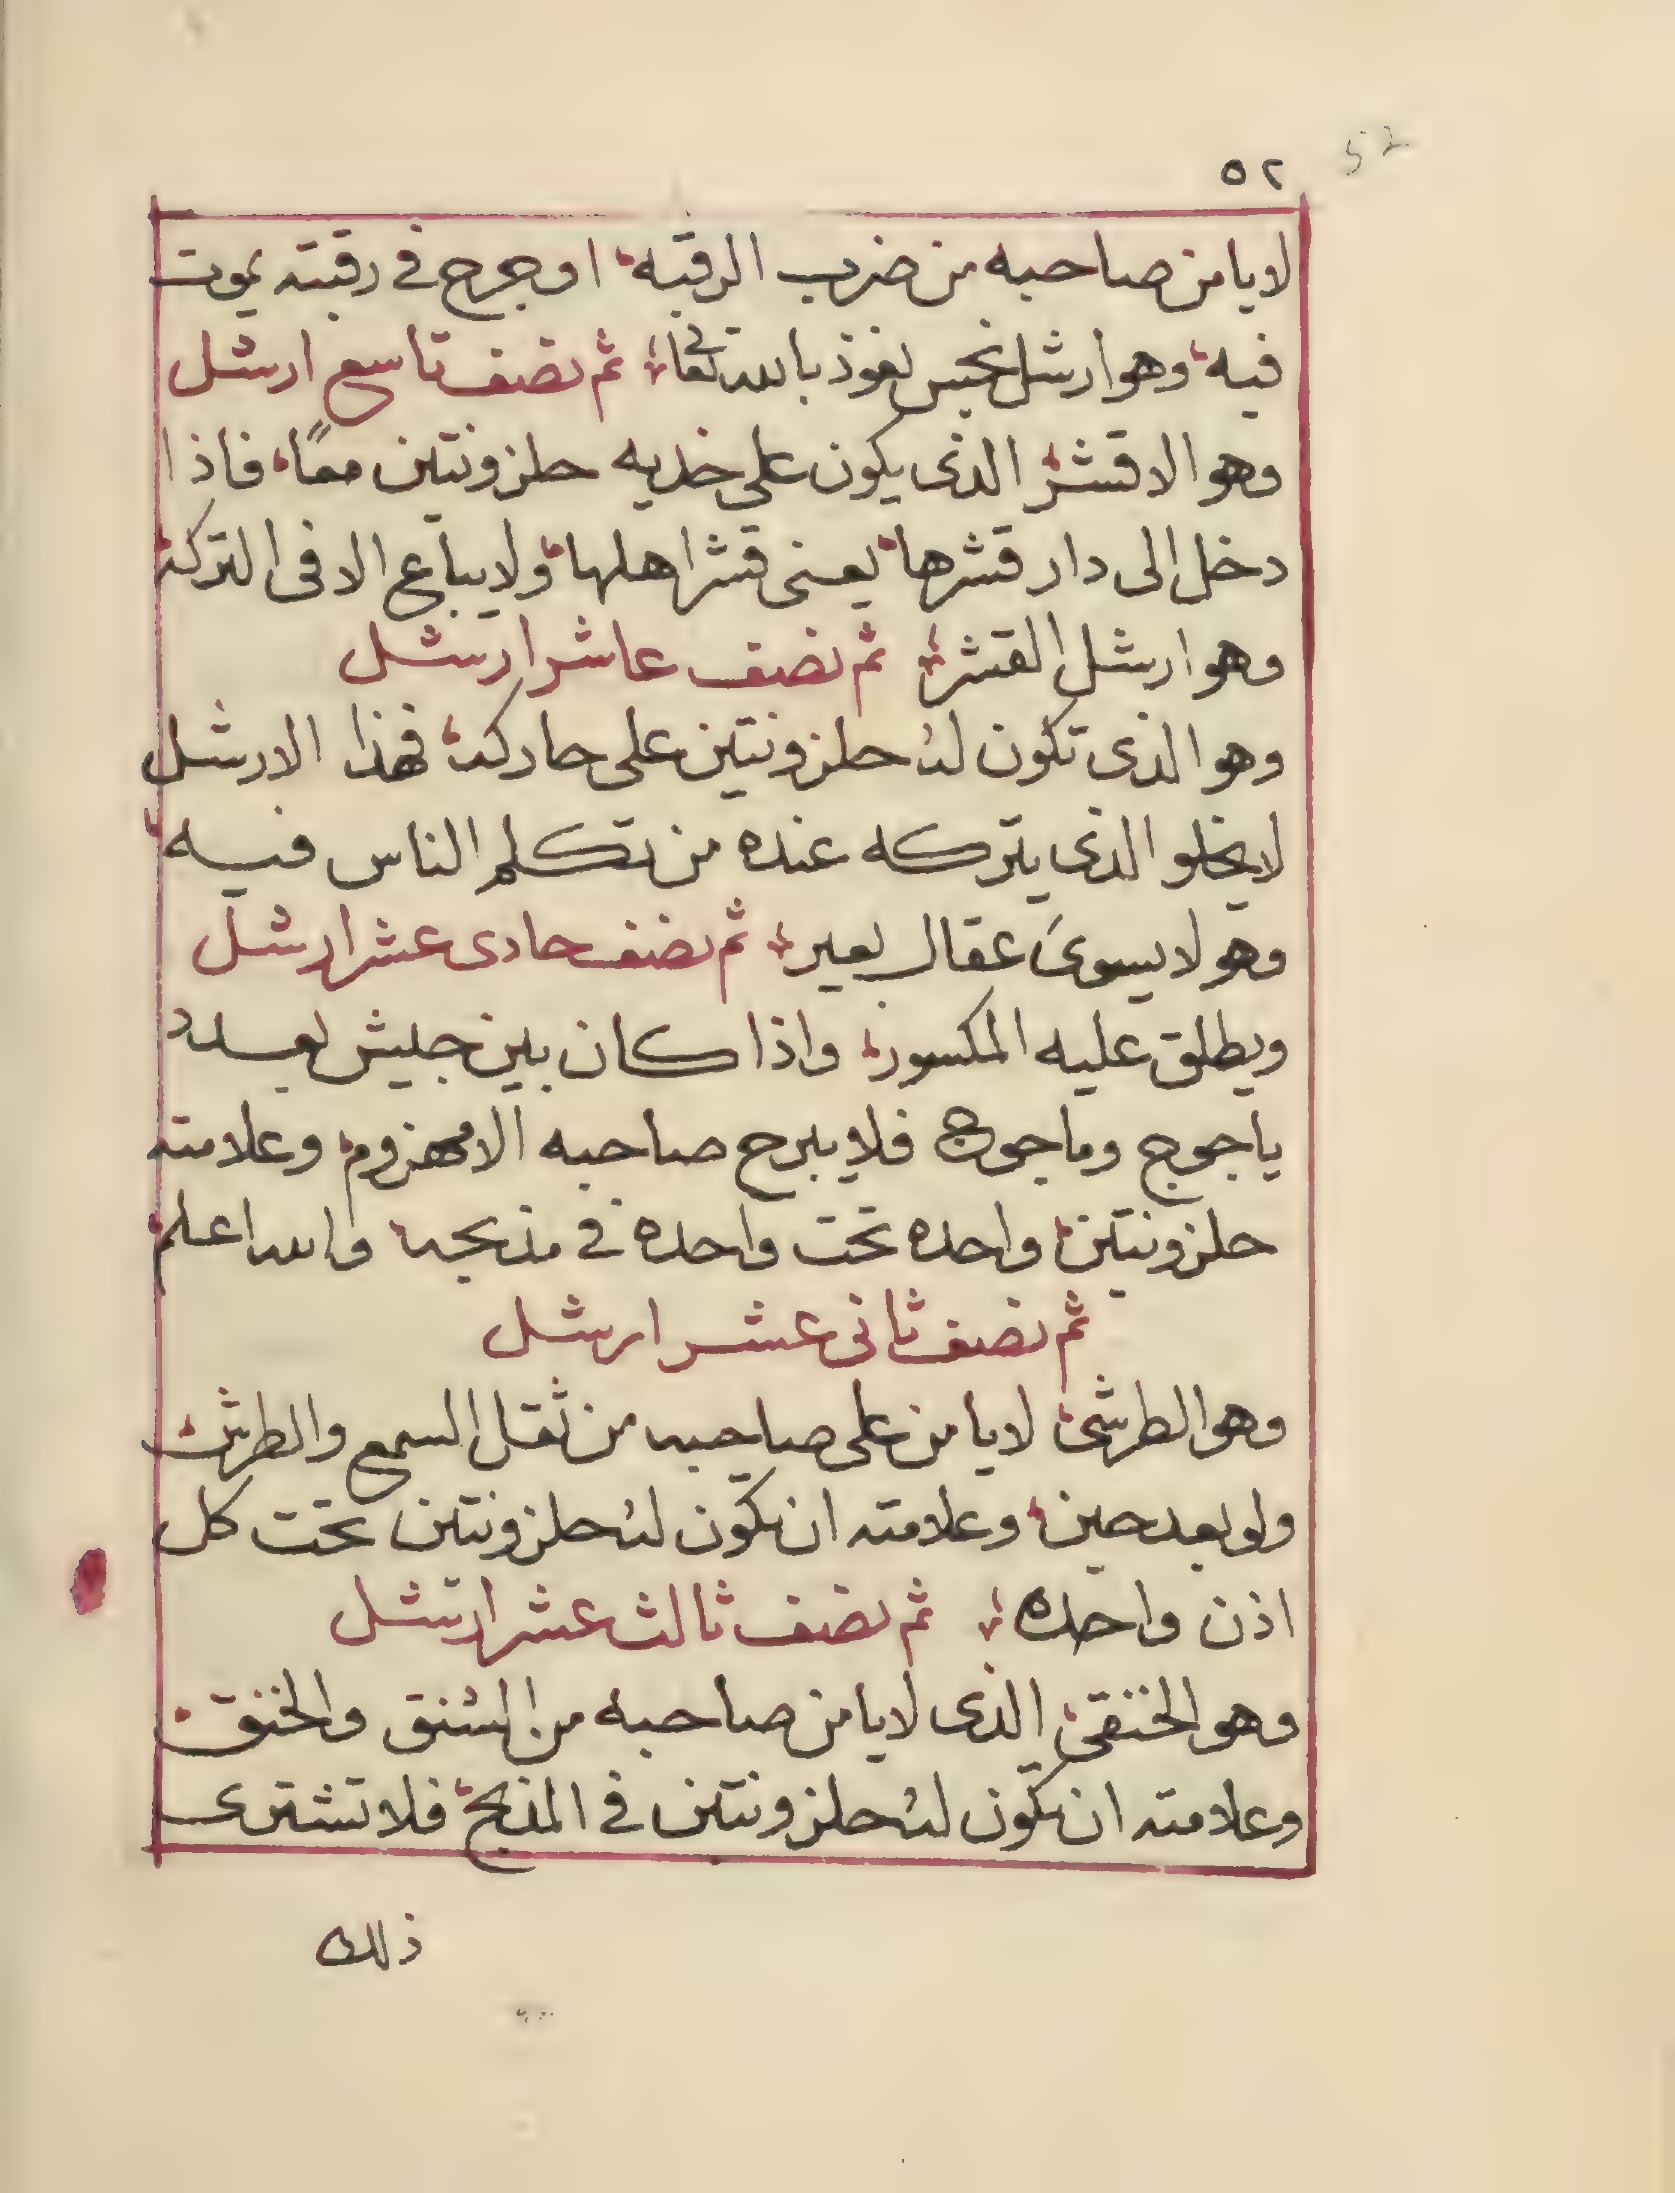 52
٥٢
لا يامن صاحبه من ضرب الرقبه، او يجرح في رقبته يموت
فيه، وهو ارشل نحيس نعوذ بالله تعالى، ثم نصف تاسع ارشل
وهو الاقشر، الذى يكون على خديه حلزونتين معًا، فاذا
دخل الى دار قشرها، يعنى قشر اهلها، ولا يباع الا فى التركة
وهو ارشل القشر، ثم نصف عاشر ارشل
وهو الذى تكون له حلزونتين على حاركه، فهذا الارشل
لا يخلو الذى يتركه عنده من تكلم الناس فيه،
وهو لا يسوى عقال بعير، ثم نصف حادى عشر ارشل
ويطلق عليه المكسور، واذا كان بين جيش بعدد
ياجوج وماجوج فلا يبرح صاحبه الا مهزوم، وعلامته
حلزونتين، واحده تحت واحده في مذبحه، والله اعلم
ثم نصف ثانى عشر ارشل
وهو الطرشى، لا يامن على صاحبه من ثقل السمع والطرش،
ولو بعد حين، وعلامته ان يكون له حلزونتين تحت كل
اذن واحده، ثم نصف ثالث عشر ارشل
وهو الخنقى، الذى لا يامن صاحبه من الشنق والخنق،
وعلامته ان يكون له حلزونتين في المذبح، فلا تشترى
ذلك